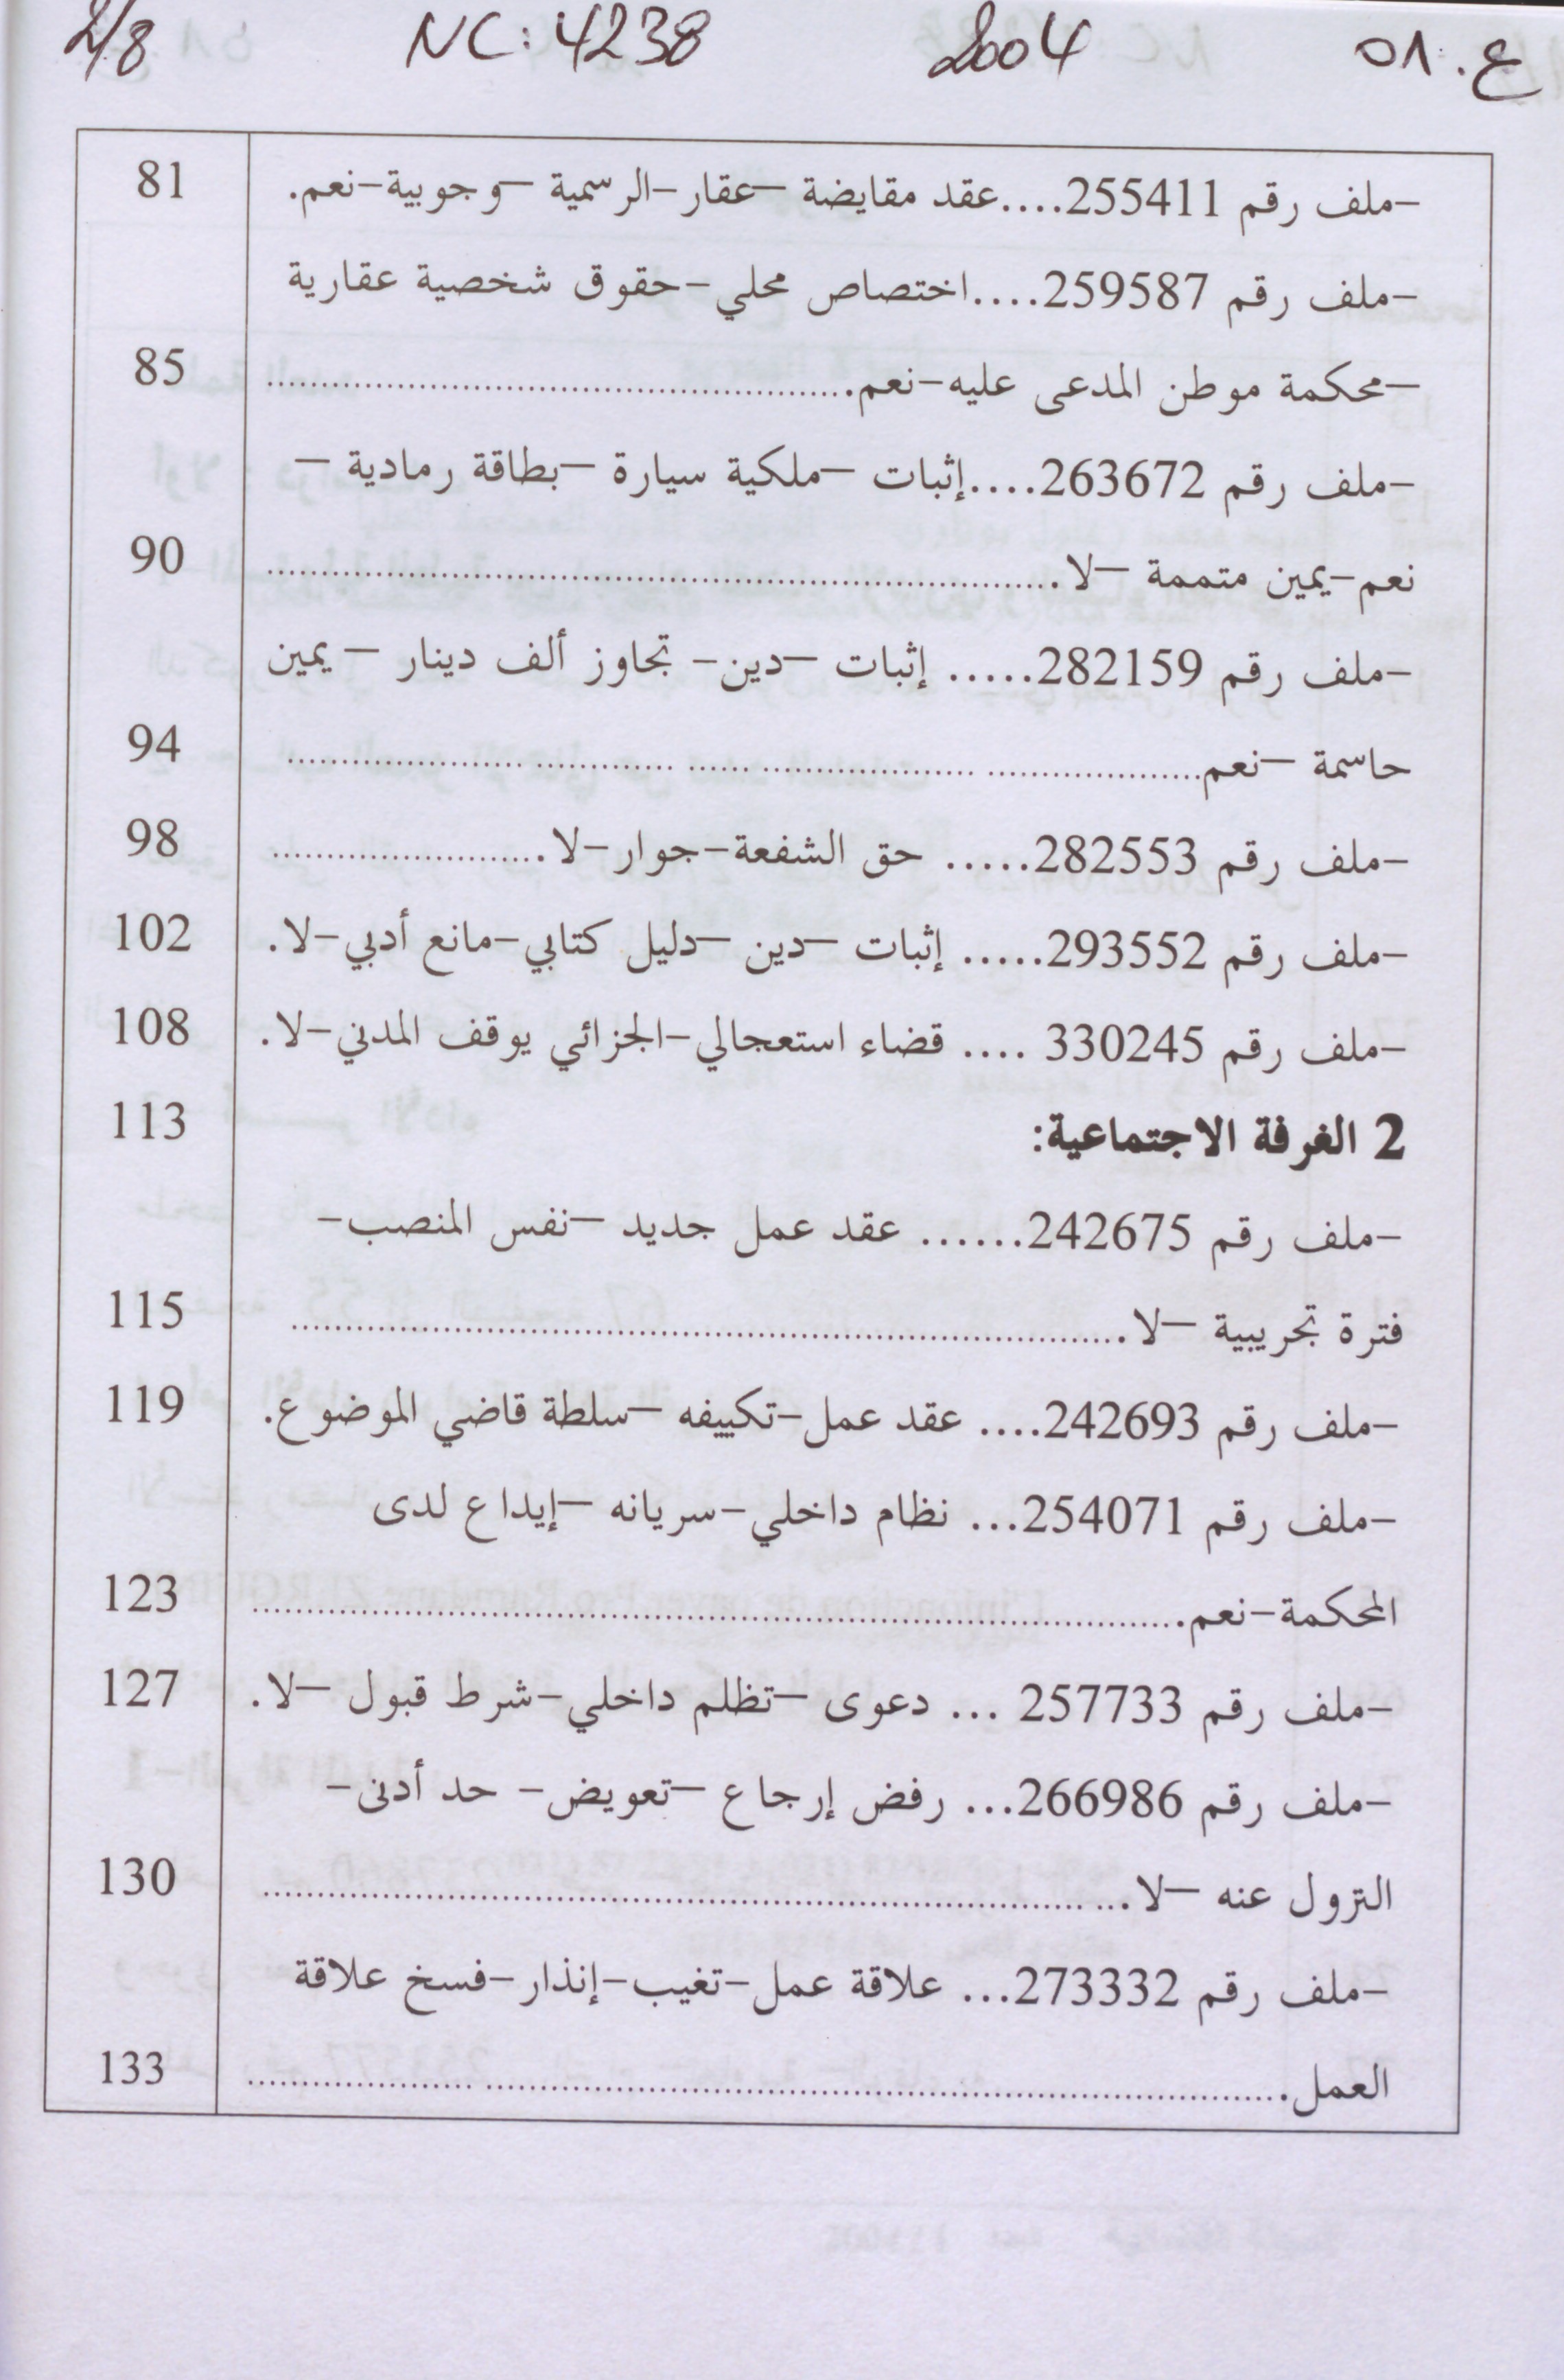 ع. 01 2004 NC: 4238 2/8
-ملف رقم 255411....عقد مقايضة –عقار-الرسمية –وجوبية-نعم. 81
-ملف رقم 259587....اختصاص محلي-حقوق شخصية عقارية
–محكمة موطن المدعى عليه-نعم........................................................ 85
-ملف رقم 263672....إثبات –ملكية سيارة –بطاقة رمادية –
نعم-يمين متممة –لا............................................................................ 90
-ملف رقم 282159..... إثبات –دين- تجاوز ألف دينار – يمين
حاسمة –نعم........................ ....................... ...... ............. ....................... 94
-ملف رقم 282553..... حق الشفعة-جوار-لا........................... 98
-ملف رقم 293552..... إثبات –دين –دليل كتابي-مانع أدبي-لا. 102
-ملف رقم 330245 .... قضاء استعجالي-الجزائي يوقف المدني-لا. 108
2 الغرفة الاجتماعية: 113
-ملف رقم 242675...... عقد عمل جديد –نفس المنصب-
فترة تجريبية –لا............................................................................... 115
-ملف رقم 242693.... عقد عمل-تكييفه –سلطة قاضي الموضوع. 119
-ملف رقم 254071... نظام داخلي-سريانه –إيداع لدى
المحكمة-نعم......................................................................................... 123
-ملف رقم 257733 ... دعوى –تظلم داخلي-شرط قبول –لا. 127
-ملف رقم 266986... رفض إرجاع –تعويض- حد أدنى-
الترول عنه –لا... ............................................................................... 130
-ملف رقم 273332... علاقة عمل-تغيب-إنذار-فسخ علاقة
العمل............................................................................ ...................... 133